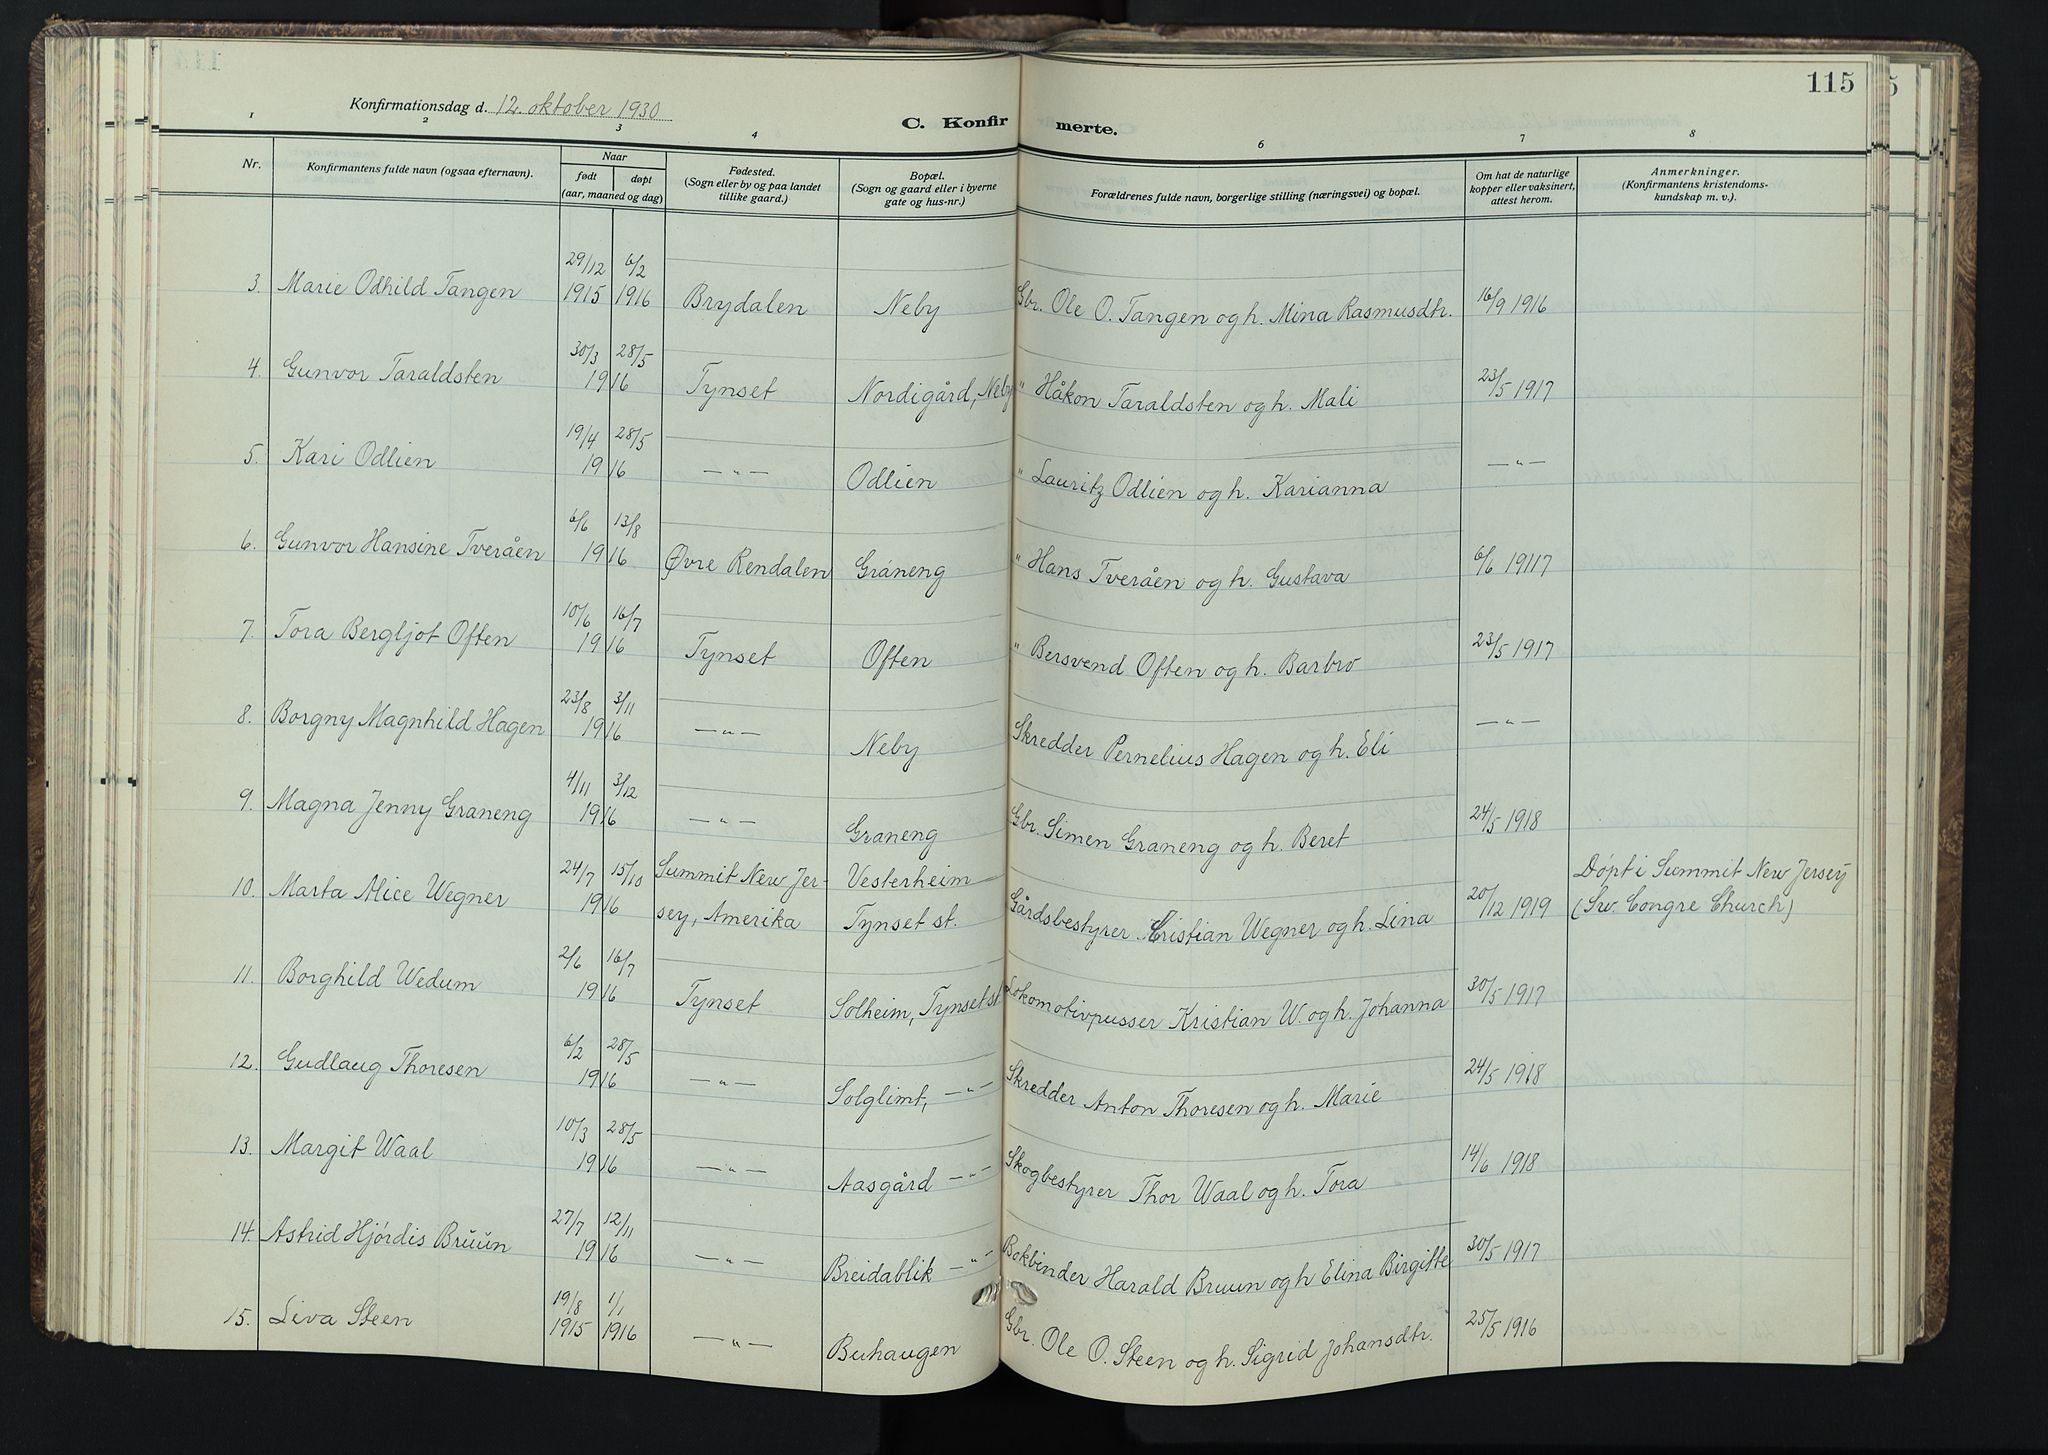 115
Konfirmationsdag d. 12. oktober 1930
C. Konfirmerte.
1 2 3 4 5 6 7 8
Nr. | Konfirmantens fulde navn (ogsaa efternavn). | Naar født døpt (aar, maaned og dag) | Fødested. (Sogn eller by og paa landet tillike gaard.) | Bopæl. (Sogn og gaard eller i byerne gate og hus-nr.) | Forældrenes fulde navn, borgerlige stilling (næringsvei) og bopæl. | Om hat de naturlige kopper eller vaksinert, attest herom. | Anmerkninger. (Konfirmantens kristendomskundskap m. v.).
3. Marie Odhild Tangen 29/12 1915 6/2 1916 Brydalen Neby Gbr. Ole O. Tangen og h. Mina Rasmusdtr. 16/9 1916
4. Gunvor Taraldsten 30/3 28/5 1916 Tynset Nordigård, Neby " Håkon Taraldsten og h. Mali 23/5 1917
5. Kari Odlien 19/4 28/5 1916 —"— Odlien " Lauritz Odlien og h. Karianna —"—
6. Gunvor Hansine Tveråen 6/6 13/8 1916 Øvre Rendalen Graneng " Hans Tveråen og h. Gustava 6/6 1917
7. Tora Bergljot Often 10/6 16/7 1916 Tynset Often " Bersvend Often og h. Barbro 23/5 1917
8. Borgny Magnhild Hagen 23/8 3/11 1916 —"— Neby Skredder Pernelius Hagen og h. Eli —"—
9. Magna Jenny Graneng 4/11 3/12 1916 —"— Graneng Gbr. Simen Graneng og h. Beret 24/5 1918
10. Marta Alice Wegner 24/7 15/10 1916 Summit New Jersey, Amerika Vesterheim Tynset st. Gårdsbestyrer Cristian Wegner og h. Lina 20/12 1919 Døpt i Summit New Jersey (Sw. Congre Church)
11. Borghild Wedum 2/6 16/7 1916 Tynset Solheim, Tynset st. Lokomotivpusser Kristian W. og h. Johanna 30/5 1917
12. Gudlaug Thoresen 6/2 28/5 1916 —"— Solglimt, —"— Skredder Anton Thoresen og h. Marie 24/5 1918
13. Margit Waal 10/3 28/5 1916 —"— Aasgård —"— Skogbestyrer Thor Waal og h. Tora 14/6 1918
14. Astrid Hjørdis Bruun 27/7 12/11 1916 —"— Breidablik —"— Bokbinder Harald Bruun og h Elina Birgitte 30/5 1917
15. Liva Steen 19/8 1915 1/1 1916 —"— Buhaugen Gbr. Ole O. Steen og h. Sigrid Johansdtr. 25/5 1916